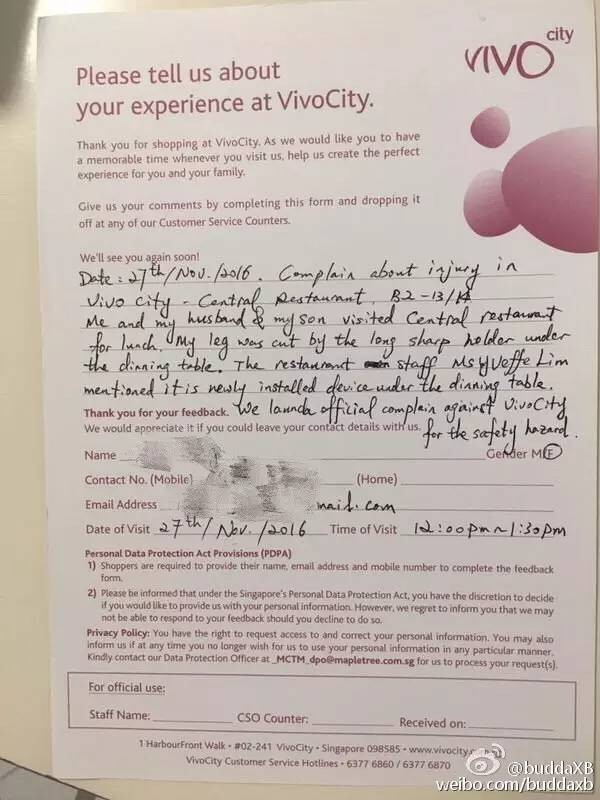 VIVO city
Please tell us about
your experience at VivoCity.
Thank you for shopping at VivoCity. As we would like you to have
a memorable time whenever you visit us, help us create the perfect
experience for you and your family.
Give us your comments by completing this form and dropping it
off at any of our Customer Service Counters.
We'll see you again soon!
Date : 27th/Nov./2016. Complain about injury in
Vivo City - Central Restaurant, B2-13/14
Me and my husband & my son visited Central restaurant
for lunch. My leg was cut by the long sharp holder under
the dinning table. The restaurant staff Ms Yveffe Lim
mentioned it is newly installed device under the dinning table.
Thank you for your feedback. We launda official complain against VivoCity
We would appreciate it if you could leave your contact details with us. for the safety hazard.
Name Gender M/F
Contact No. (Mobile) (Home)
Email Address mail.com
Date of Visit 27th/Nov./2016 Time of Visit 12:00pm~1:30pm
Personal Data Protection Act Provisions (PDPA)
1) Shoppers are required to provide their name, email address and mobile number to complete the feedback
form.
2) Please be informed that under the Singapore's Personal Data Protection Act, you have the discretion to decide
if you would like to provide us with your personal information. However, we regret to inform you that we may
not be able to respond to your feedback should you decline to do so.
Privacy Policy: You have the right to request access to and correct your personal information. You may also
inform us if at any time you no longer wish for us to use your personal information in any particular manner.
Kindly contact our Data Protection Officer at _MCTM_dpo@mapletree.com.sg for us to process your request(s).
For official use:
Staff Name: CSO Counter: Received on:
1 HarbourFront Walk • #02-241 VivoCity • Singapore 098585 • www.vivocity.com.sg
VivoCity Customer Service Hotlines • 6377 6860 / 6377 6870
@buddaXB
weibo.com/buddaxb